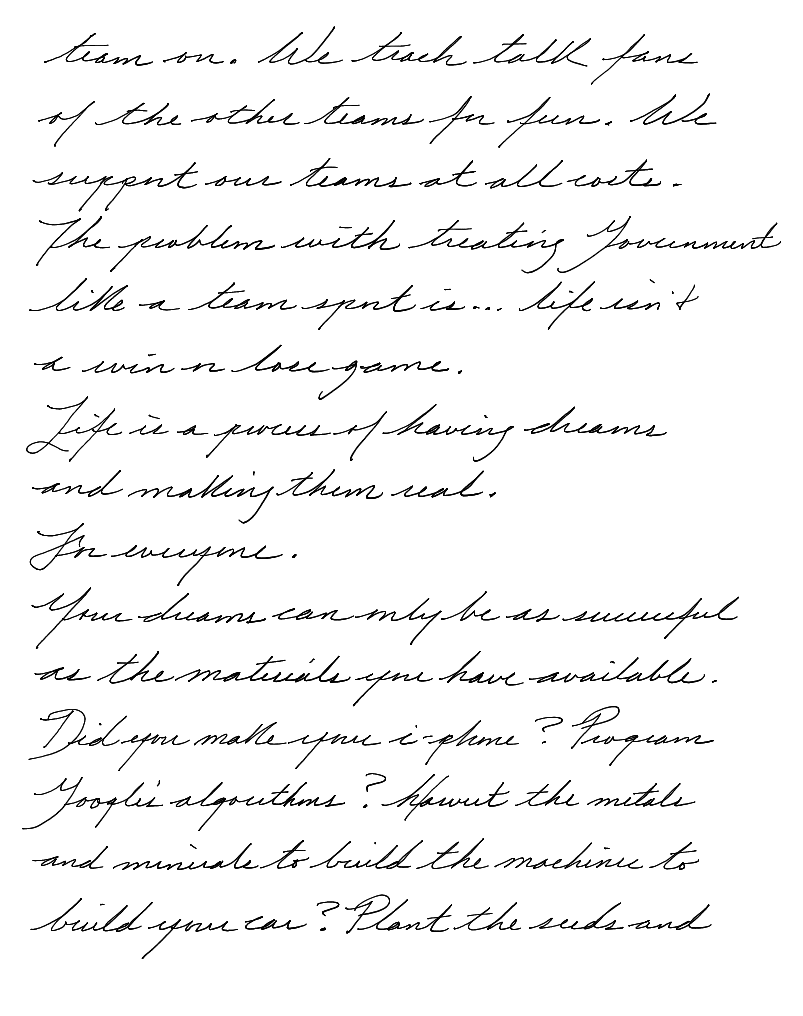 team on. We trash talk fans
of the other teams for fun. We
support our teams at all costs.
The problem with treating Government
like a team sport is... life isn't
a win or lose game.
Life is a process of having dreams
and making them real.
For everyone.
Your dreams can only be as successful
as the materials you have available.
Did you make your i-phone? Program
Google's algorithms? Harvest the metals
and minerals to build the machines to
build your car? Plant the seeds and